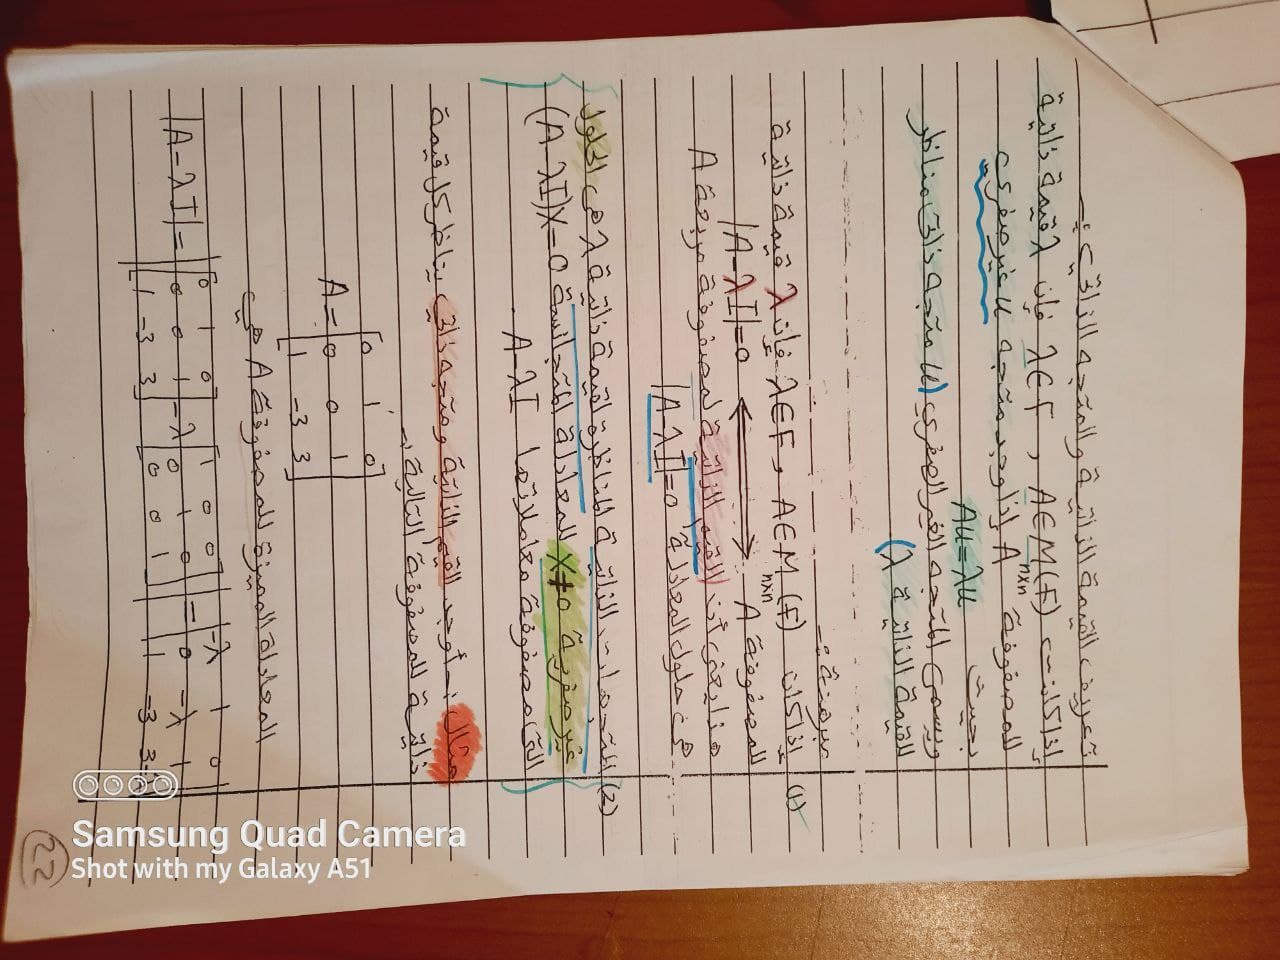 تعريف القيمة الذاتية والمتجه الذاتي :-
إذا كانت A∈M(F) , λ∈F فإن λ قيمة ذاتية
n×n
للمصفوفة A إذا وجد متجه u غير صفري
بحيث Au=λu
ويسمى المتجه الغير الصفري (u متجه ذاتي مناظر
للقيمة الذاتية λ)
مبرهنة :-
(1) إذا كان A∈M(F) , λ∈F فإن λ قيمة ذاتية
n×n
للمصفوفة A ⟺ |A-λI|=0
هذا يعني أن القيم الذاتية لمصفوفة مربعة A
هي حلول المعادلة |A-λI|=0
(2) المتجهات الذاتية المناظرة لقيمة ذاتية λ هي الحلول
غير صفرية X≠0 للمعادلة المتجانسة (A-λI)X=0
التي مصفوفة معاملاتها A-λI .
مثال :- أوجد القيم الذاتية ومتجه ذاتي يناظر كل قيمة
ذاتية للمصفوفة التالية :-
A = [0 1 0
0 0 1
1 -3 3]
المعادلة المميزة للمصفوفة A هي
|A-λI| = | [0 1 0] - λ [1 0 0] | = |-λ 1 0|
[0 0 1] [0 1 0] |0 -λ 1|
[1 -3 3] [0 0 1] |1 -3 3-λ|
22
Samsung Quad Camera
Shot with my Galaxy A51